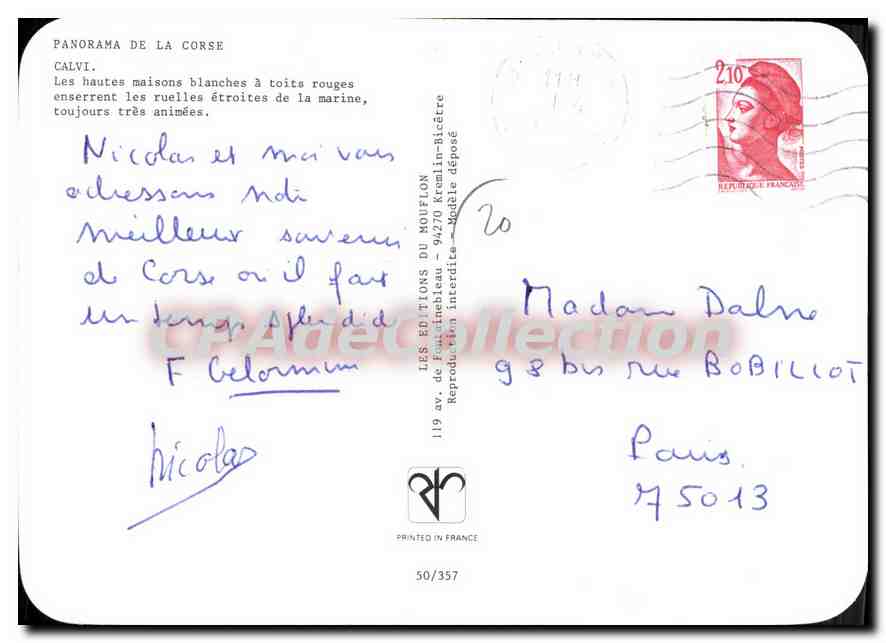 PANORAMA DE LA CORSE
CALVI.
Les hautes maisons blanches à toits rouges
enserrent les ruelles étroites de la marine,
toujours très animées.
Nicolas et moi vous
adressons nos
meilleurs souvenirs
de Corse où il fait
un temps splendide
F
Nicolas
LES EDITIONS DU MOUFLON
119 av. de Fontainebleau - 94270 Kremlin-Bicêtre
Reproduction interdite - Modèle déposé
PRINTED IN FRANCE
50/357
2,10
POSTES
REPUBLIQUE FRANÇAISE
20
Madame
98 bis rue BOBILLOT
Paris
75013
CPAdeCollection